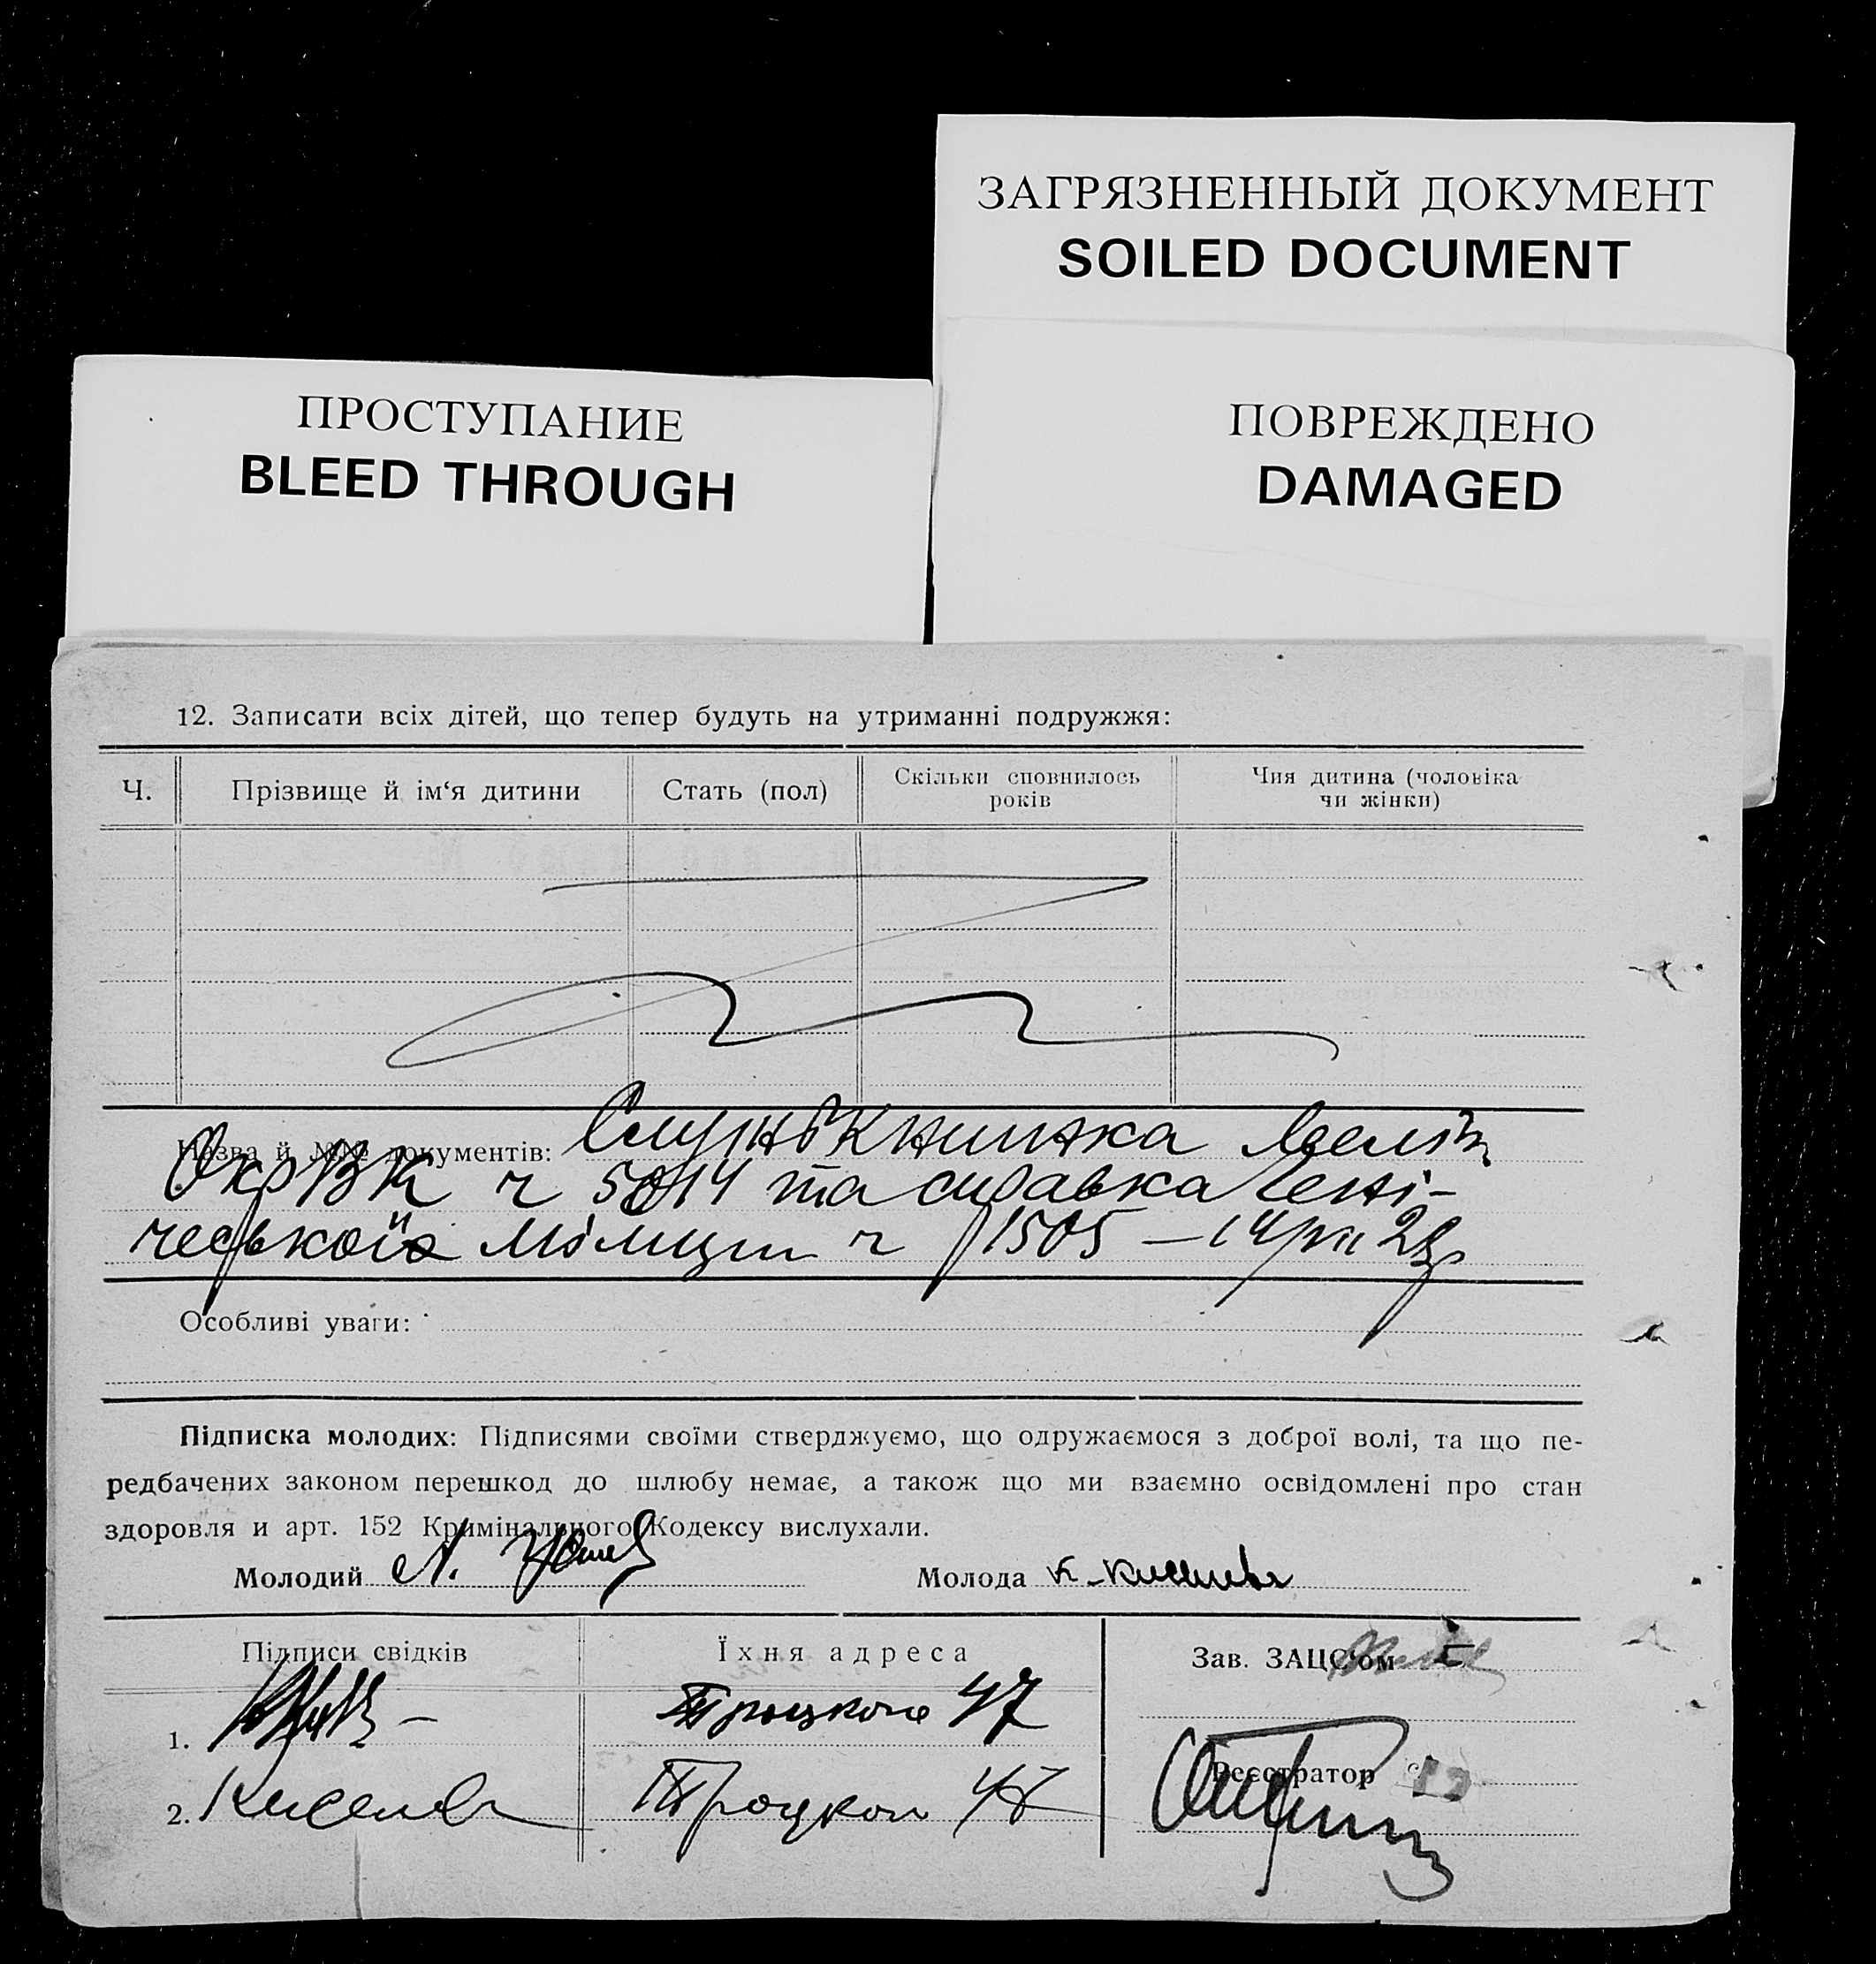 ЗАГРЯЗНЕННЫЙ ДОКУМЕНТ
SOILED DOCUMENT
ПРОСТУПАНИЕ
BLEED THROUGH
ПОВРЕЖДЕНО
DAMAGED
12. Записати всіх дітей, що тепер будуть на утриманні подружжя:
Ч.
Прізвище й ім‘я дитини
Стать (пол)
Скільки сповнилось
років
Чия дитина (чоловіка
чи жінки)
Назва й №№ документів:
ОкрВК ч 5014 та справка Гені-
чеської Міліции ч 1505 —
Особливі уваги:
Підписка молодих: Підписями своїми стверджуємо, що одружаємося з доброї волі, та що пе-
редбачених законом перешкод до шлюбу немає, а також що ми взаємно освідомлені про стан
здоровля и арт. 152 Кримінального Кодексу вислухали.
Молодий
Молода К. Киселева
Підписи свідків
Їхня адреса
Зав. ЗАЦС‘ом
1.
Троцкого 47
Реєстратор
2. Киселев
Троцкого 47